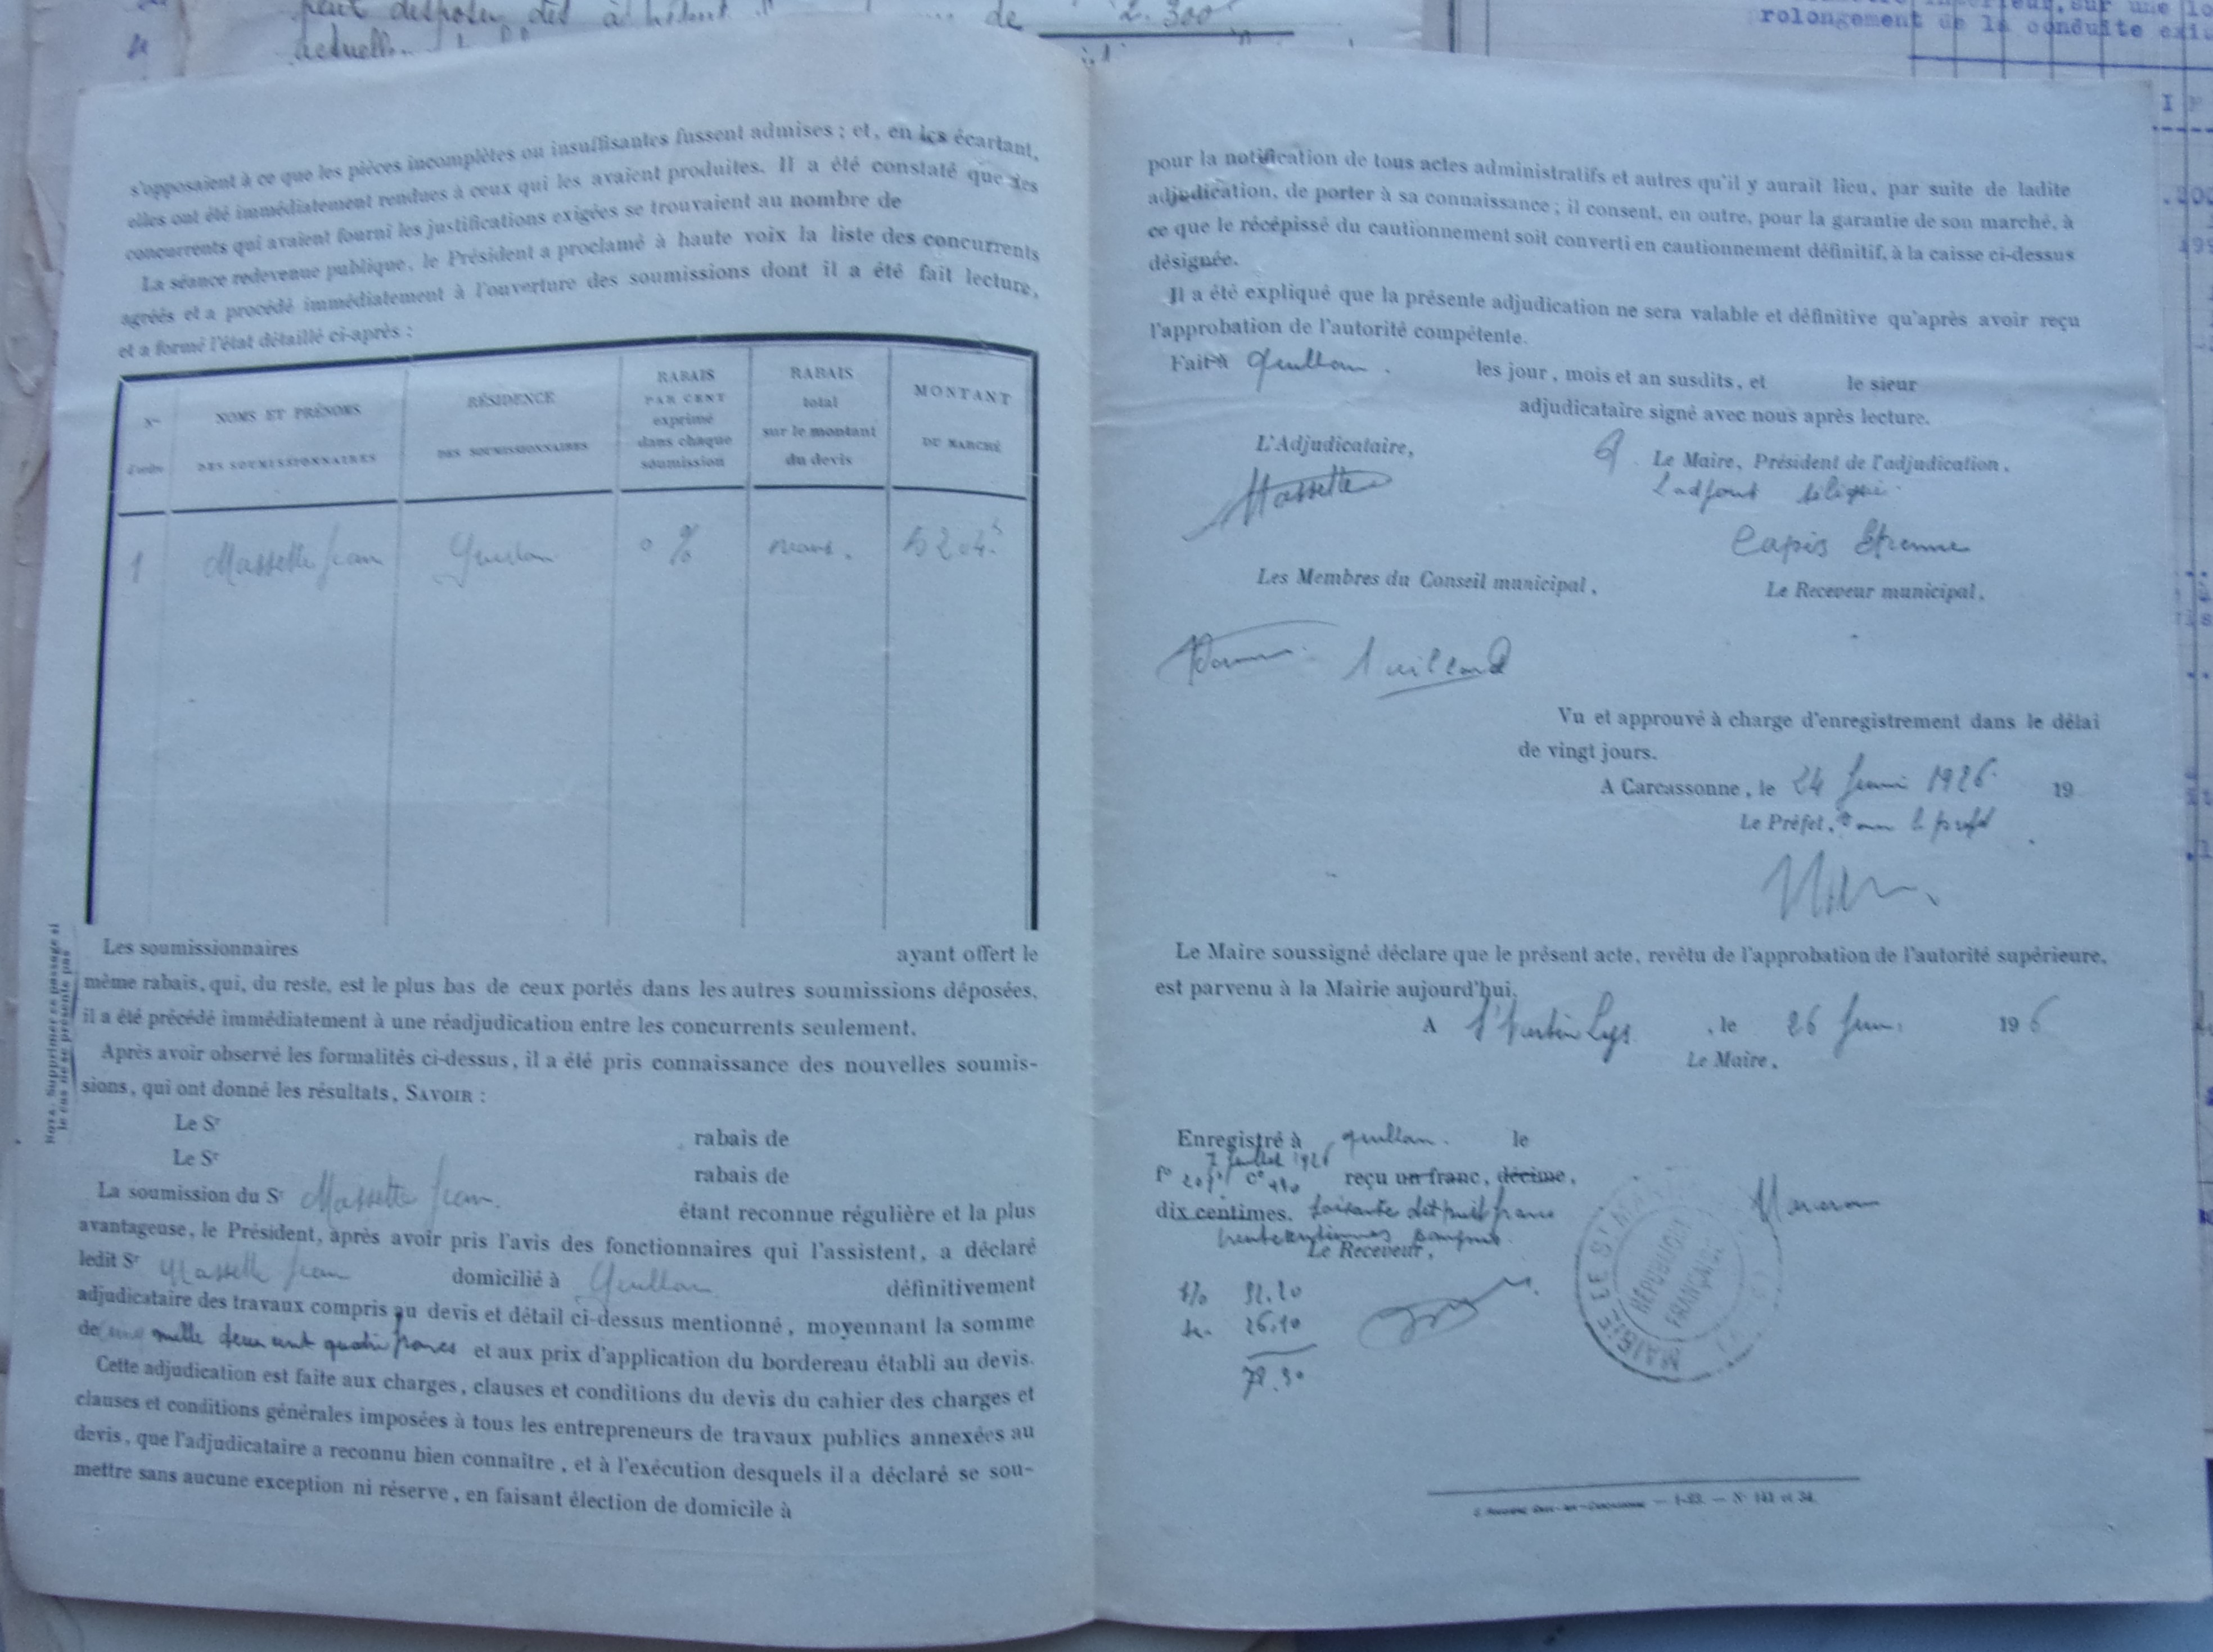 de 2.300
actuell
s'opposaient à ce que les pièces incomplètes ou insuffisantes fussent admises ; et, en les écartant,
elles ont été immédiatement rendues à ceux qui les avaient produites. Il a été constaté que les
concurrents qui avaient fourni les justifications exigées se trouvaient au nombre de
La séance redevenue publique, le Président a proclamé à haute voix la liste des concurrents
agréés et a procédé immédiatement à l'ouverture des soumissions dont il a été fait lecture,
et a formé l'état détaillé ci-après :
Nos d'ordre
NOMS ET PRÉNOMS DES SOUMISSIONNAIRES
RÉSIDENCE DES SOUMISSIONNAIRES
RABAIS PAR CENT exprimé dans chaque soumission
RABAIS total sur le montant du devis
MONTANT DU MARCHÉ
1 Massette Jean Quillan 0 % néant. 5204
Les soumissionnaires ayant offert le
même rabais, qui, du reste, est le plus bas de ceux portés dans les autres soumissions déposées,
il a été précédé immédiatement à une réadjudication entre les concurrents seulement.
Après avoir observé les formalités ci-dessus, il a été pris connaissance des nouvelles soumis-
sions, qui ont donné les résultats, SAVOIR :
Le Sr rabais de
Le Sr rabais de
La soumission du Sr Massette Jean. étant reconnue régulière et la plus
avantageuse, le Président, après avoir pris l'avis des fonctionnaires qui l'assistent, a déclaré
ledit Sr Massette Jean domicilié à Quillan définitivement
adjudicataire des travaux compris au devis et détail ci-dessus mentionné, moyennant la somme
de mille deux cent quatre francs et aux prix d'application du bordereau établi au devis.
Cette adjudication est faite aux charges, clauses et conditions du devis du cahier des charges et
clauses et conditions générales imposées à tous les entrepreneurs de travaux publics annexées au
devis, que l'adjudicataire a reconnu bien connaître, et à l'exécution desquels il a déclaré se sou-
mettre sans aucune exception ni réserve, en faisant élection de domicile à
Nota. Supprimer ce passage si
le cas ne se présente pas
rolongement de la conduite
pour la notification de tous actes administratifs et autres qu'il y aurait lieu, par suite de ladite
adjudication, de porter à sa connaissance ; il consent, en outre, pour la garantie de son marché, à
ce que le récépissé du cautionnement soit converti en cautionnement définitif, à la caisse ci-dessus
désignée.
Il a été expliqué que la présente adjudication ne sera valable et définitive qu'après avoir reçu
l'approbation de l'autorité compétente.
Fait à Quillan. les jour, mois et an susdits, et le sieur
adjudicataire signé avec nous après lecture.
L'Adjudicataire,
Massette
Le Maire, Président de l'adjudication,
L'adjoint délégué
Capis Etienne
Les Membres du Conseil municipal,
Le Receveur municipal,
Vu et approuvé à charge d'enregistrement dans le délai
de vingt jours.
A Carcassonne, le 24 Juin 1926. 19
Le Préfet, Pour le préfet
Le Maire soussigné déclare que le présent acte, revêtu de l'approbation de l'autorité supérieure,
est parvenu à la Mairie aujourd'hui.
A St Martin Lys , le 26 Juin 19 6
Le Maire,
Enregistré à Quillan. le
7 Juillet 1926
reçu un franc, décime,
dix centimes. soixante dix huit francs
trente centimes
Le Receveur,
52.20
26.10
78.30
MAIRIE DE ST MA
RÉPUBLIQUE FRANÇAISE
1-23. — N° 141 et 34.